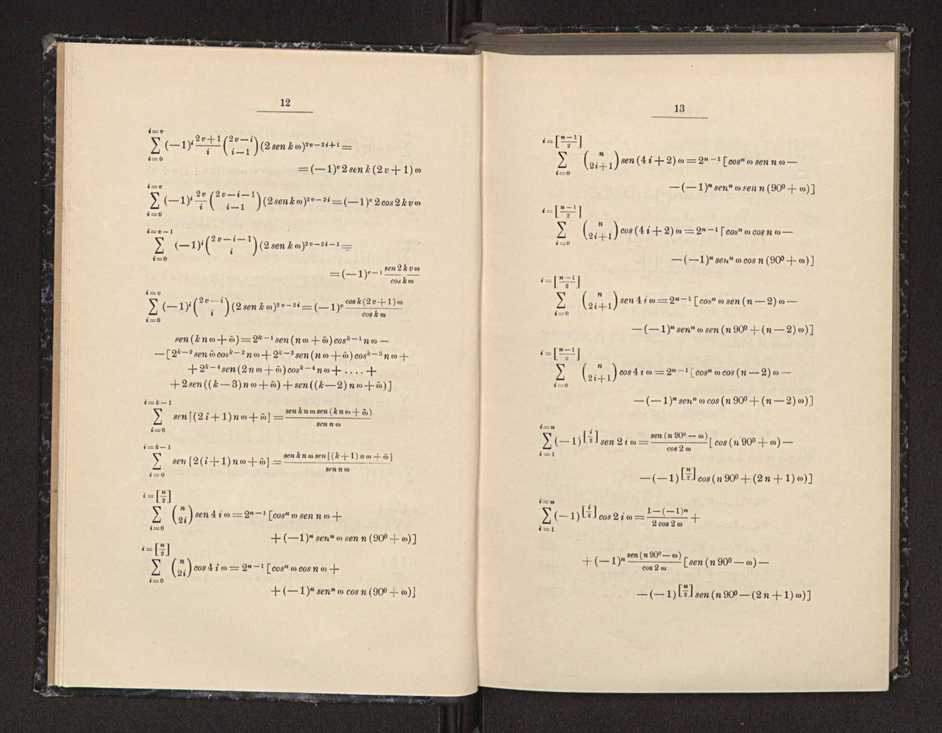 12
$\sum_{i=0}^{i=v}(-1)^i\frac{2v+1}{i}\binom{2v-i}{i-1}(2\,sen\,k\,\omega)^{2v-2i+1}=$
$=(-1)^v\,2\,sen\,k\,(2v+1)\,\omega$
$\sum_{i=0}^{i=v}(-1)^i\frac{2v}{i}\binom{2v-i-1}{i-1}(2\,sen\,k\,\omega)^{2v-2i}=(-1)^v\,2\,cos\,2\,k\,v\,\omega$
$\sum_{i=0}^{i=v-1}(-1)^i\binom{2v-i-1}{i}(2\,sen\,k\,\omega)^{2v-2i-1}=$
$=(-1)^{v-1}\frac{sen\,2\,k\,v\,\omega}{cos\,k\,\omega}$
$\sum_{i=0}^{i=v}(-1)^i\binom{2v-i}{i}(2\,sen\,k\,\omega)^{2v-2i}=(-1)^v\frac{cos\,k\,(2v+1)\,\omega}{cos\,k\,\omega}$
$sen\,(k\,n\,\omega+\tilde{\omega})=2^{k-1}\,sen\,(n\,\omega+\tilde{\omega})\,cos^{k-1}\,n\,\omega-$
$-[2^{k-2}\,sen\,\tilde{\omega}\,cos^{k-2}\,n\,\omega+2^{k-3}\,sen\,(n\,\omega+\tilde{\omega})\,cos^{k-3}\,n\,\omega+$
$+2^{k-4}\,sen\,(2\,n\,\omega+\tilde{\omega})\,cos^{k-4}\,n\,\omega+\,....\,+$
$+2\,sen\,((k-3)\,n\,\omega+\tilde{\omega})+sen\,((k-2)\,n\,\omega+\tilde{\omega})]$
$\sum_{i=0}^{i=k-1}sen\,[(2\,i+1)\,n\,\omega+\tilde{\omega}]=\frac{sen\,k\,n\,\omega\,sen\,(k\,n\,\omega+\tilde{\omega})}{sen\,n\,\omega}$
$\sum_{i=0}^{i=k-1}sen\,[2\,(i+1)\,n\,\omega+\tilde{\omega}]=\frac{sen\,k\,n\,\omega\,sen\,[(k+1)\,n\,\omega+\tilde{\omega}]}{sen\,n\,\omega}$
$\sum_{i=0}^{i=[\frac{n}{2}]}\binom{n}{2i}sen\,4\,i\,\omega=2^{n-1}\,[cos^n\,\omega\,sen\,n\,\omega+$
$+(-1)^n\,sen^n\,\omega\,sen\,n\,(90^0+\omega)]$
$\sum_{i=0}^{i=[\frac{n}{2}]}\binom{n}{2i}cos\,4\,i\,\omega=2^{n-1}\,[cos^n\,\omega\,cos\,n\,\omega+$
$+(-1)^n\,sen^n\,\omega\,cos\,n\,(90^0+\omega)]$
13
$\sum_{i=0}^{i=[\frac{n-1}{2}]}\binom{n}{2i+1}sen\,(4\,i+2)\,\omega=2^{n-1}\,[cos^n\,\omega\,sen\,n\,\omega-$
$-(-1)^n\,sen^n\,\omega\,sen\,n\,(90^0+\omega)]$
$\sum_{i=0}^{i=[\frac{n-1}{2}]}\binom{n}{2i+1}cos\,(4\,i+2)\,\omega=2^{n-1}\,[cos^n\,\omega\,cos\,n\,\omega-$
$-(-1)^n\,sen^n\,\omega\,cos\,n\,(90^0+\omega)]$
$\sum_{i=0}^{i=[\frac{n-1}{2}]}\binom{n}{2i+1}sen\,4\,i\,\omega=2^{n-1}\,[cos^n\,\omega\,sen\,(n-2)\,\omega-$
$-(-1)^n\,sen^n\,\omega\,sen\,(n\,90^0+(n-2)\,\omega)]$
$\sum_{i=0}^{i=[\frac{n-1}{2}]}\binom{n}{2i+1}cos\,4\,i\,\omega=2^{n-1}\,[cos^n\,\omega\,cos\,(n-2)\,\omega-$
$-(-1)^n\,sen^n\,\omega\,cos\,(n\,90^0+(n-2)\,\omega)]$
$\sum_{i=1}^{i=n}(-1)^{[\frac{i}{2}]}\,sen\,2\,i\,\omega=\frac{sen\,(n\,90^0-\omega)}{cos\,2\,\omega}[\,cos\,(n\,90^0+\omega)-$
$-(-1)^{[\frac{n}{2}]}\,cos\,(n\,90^0+(2\,n+1)\,\omega)]$
$\sum_{i=1}^{i=n}(-1)^{[\frac{i}{2}]}\,cos\,2\,i\,\omega=\frac{1-(-1)^n}{2\,cos\,2\,\omega}+$
$+(-1)^n\frac{sen\,(n\,90^0-\omega)}{cos\,2\,\omega}[sen\,(n\,90^0-\omega)-$
$-(-1)^{[\frac{n}{2}]}\,sen\,(n\,90^0-(2\,n+1)\,\omega)]$